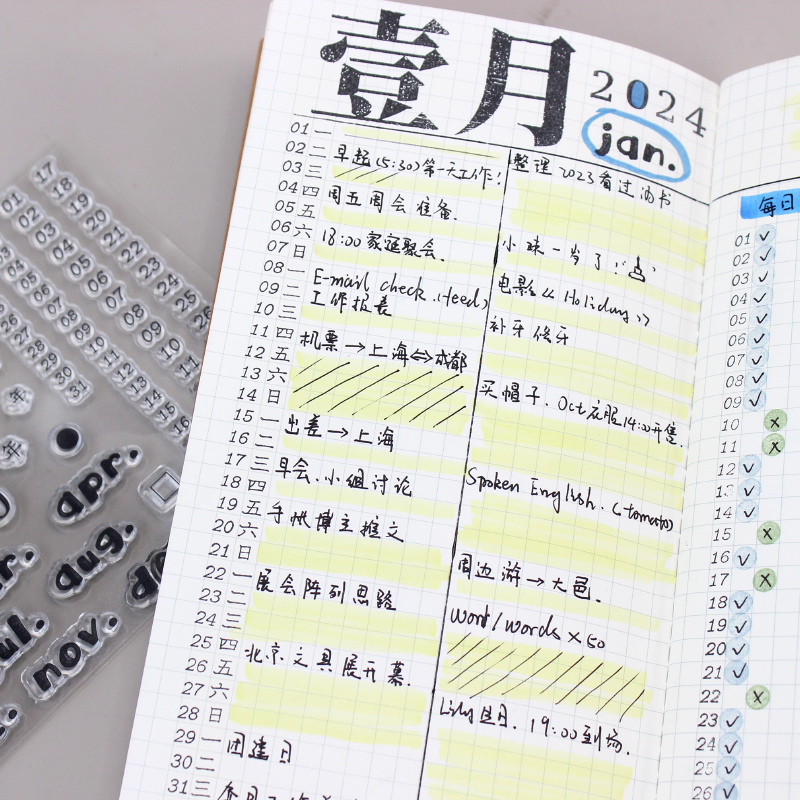 壹月
2024
jan.
01 一
02 二 早起(5:30)第一天工作! 整理2023看过的书
03 三
04 四 周五周会准备.
05 五
06 六 18:00家庭聚会. 小妹一岁了!
07 日
08 一 E-mail check. (feed) 电影《Holiday》
09 二 工作报表
10 三 补牙修牙
11 四 机票→上海⇔成都
12 五
13 六 买帽子. Oct衣服14:00开售.
14 日
15 一 出差→上海
16 二
17 三 早会.小组讨论 Spoken English. (tomato)
18 四
19 五 手帐博主推文
20 六
21 日 周边游→大邑.
22 一 展会阵列思路
23 二 word/words×50
24 三
25 四 北京文具展开幕.
26 五
27 六 Lily生日. 19:00到场.
28 日
29 一 团建日
30 二
31 三
每日
01 ✓
02 ✓
03 ✓
04 ✓
05 ✓
06 ✓
07 ✓
08 ✓
09 ✓
10 x
11 x
12 ✓
13 ✓
14 ✓
15 x
16 ✓
17 x
18 ✓
19 ✓
20 ✓
21 ✓
22 x
23 ✓
24 ✓
25 ✓
26 ✓
01 17
02 18
03 19
04 20
05 21
06 22
07 23
08 24
09 25
10 26
11
12
13
14
15
16
26
27
28
29
30
31
年
年
apr.
aug.
nov.